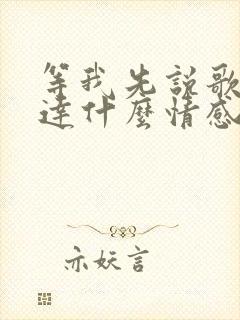 等我先說歌
達什麼情感
亦妖言